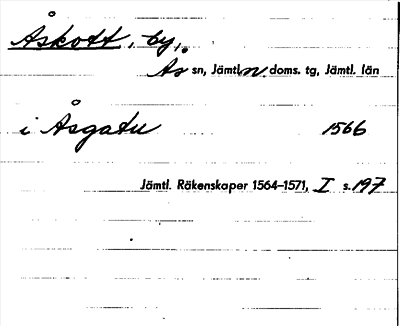 Åskott, by,
As sn, Jämtl. n doms. tg, Jämtl. län
i Åsgatu 1566
Jämtl. Räkenskaper 1564–1571, I s. 197